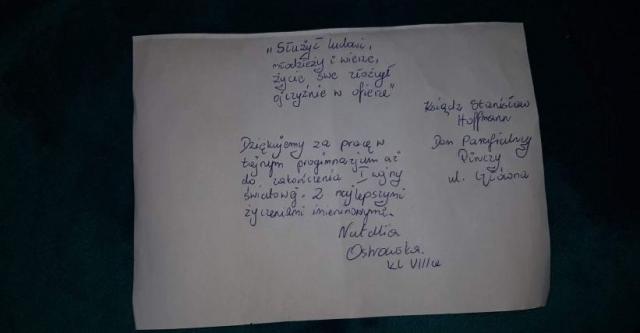 „Służył ludowi,
młodzieży i wierze,
życie swe złożył
ojczyźnie w ofierze"
Ksiądz Stanisław
Hoffmann
Dom Parafialny
Pińczy
ul. Główna
Dziękujemy za pracę w
tajnym progimnazjum aż
do zakończenia I wojny
światowej. Z najlepszymi
życzeniami imieninowymi.
Natalia
Ostrowska.
kl VIIIa